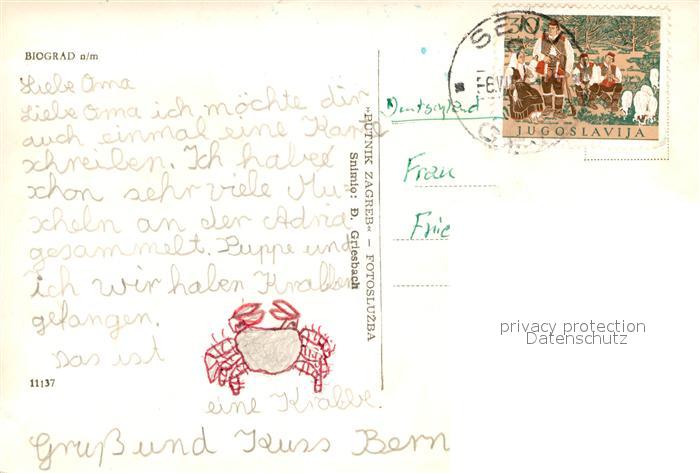 BIOGRAD n/m
Liebe Oma
Liebe Oma ich möchte dir
auch einmal eine Karte
schreiben. Ich habe
schon sehr viele Mu-
scheln an der Adria
gesammelt. Puppe und
ich wir haben Krabben
gefangen.
Das ist
eine Krabbe.
Gruß und Kuss Bern
11137
»PUTNIK ZAGREB« — FOTOSLUŽBA
Snimio: Đ. Griesbach
30
JUGOSLAVIJA
Deutschland
Frau
Frie
privacy protection
Datenschutz